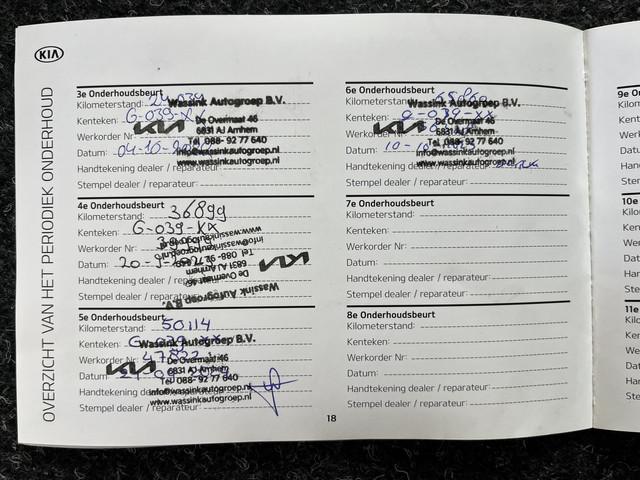 KIA
OVERZICHT VAN HET PERIODIEK ONDERHOUD
3e Onderhoudsbeurt
Kilometerstand: 24.039
Kenteken: G-039-X
Werkorder Nr
Datum: 04-10-
Handtekening dealer / reparateur:
Stempel dealer / reparateur:
Wassink Autogroep B.V.
KIA
De Overmaat 46
6831 AJ Arnhem
Tel. 088- 92 77 640
info@wassinkautogroep.nl
www.wassinkautogroep.nl
4e Onderhoudsbeurt
Kilometerstand: 36899
Kenteken: G-039-XX
Werkorder Nr:
Datum: 20-
Handtekening dealer / reparateur:
Stempel dealer / reparateur:
Wassink Autogroep B.V.
KIA
De Overmaat 46
6831 AJ Arnhem
Tel 088- 92 77 640
info@wassinkautogroep.nl
www.wassinkautogroep.nl
5e Onderhoudsbeurt
Kilometerstand: 50.114
Kenteken: G
Werkorder Nr: 47822
Datum:
Handtekening dealer / reparateur:
Stempel dealer / reparateur:
Wassink Autogroep B.V.
KIA
De Overmaat 46
6831 AJ Arnhem
Tel 088- 92 77 640
info@wassinkautogroep.nl
www.wassinkautogroep.nl
6e Onderhoudsbeurt
Kilometerstand: 65860
Kenteken: G-039-XX
Werkorder Nr
Datum: 10-
Handtekening dealer / reparateur:
Stempel dealer / reparateur:
Wassink Autogroep B.V.
KIA
De Overmaat 46
6831 AJ Arnhem
Tel. 088- 92 77 640
info@wassinkautogroep.nl
www.wassinkautogroep.nl
7e Onderhoudsbeurt
Kilometerstand:
Kenteken:
Werkorder Nr:
Datum:
Handtekening dealer / reparateur:
Stempel dealer / reparateur:
8e Onderhoudsbeurt
Kilometerstand:
Kenteken:
Werkorder Nr:
Datum:
Handtekening dealer / reparateur:
Stempel dealer / reparateur:
18
9e O
10e
11e